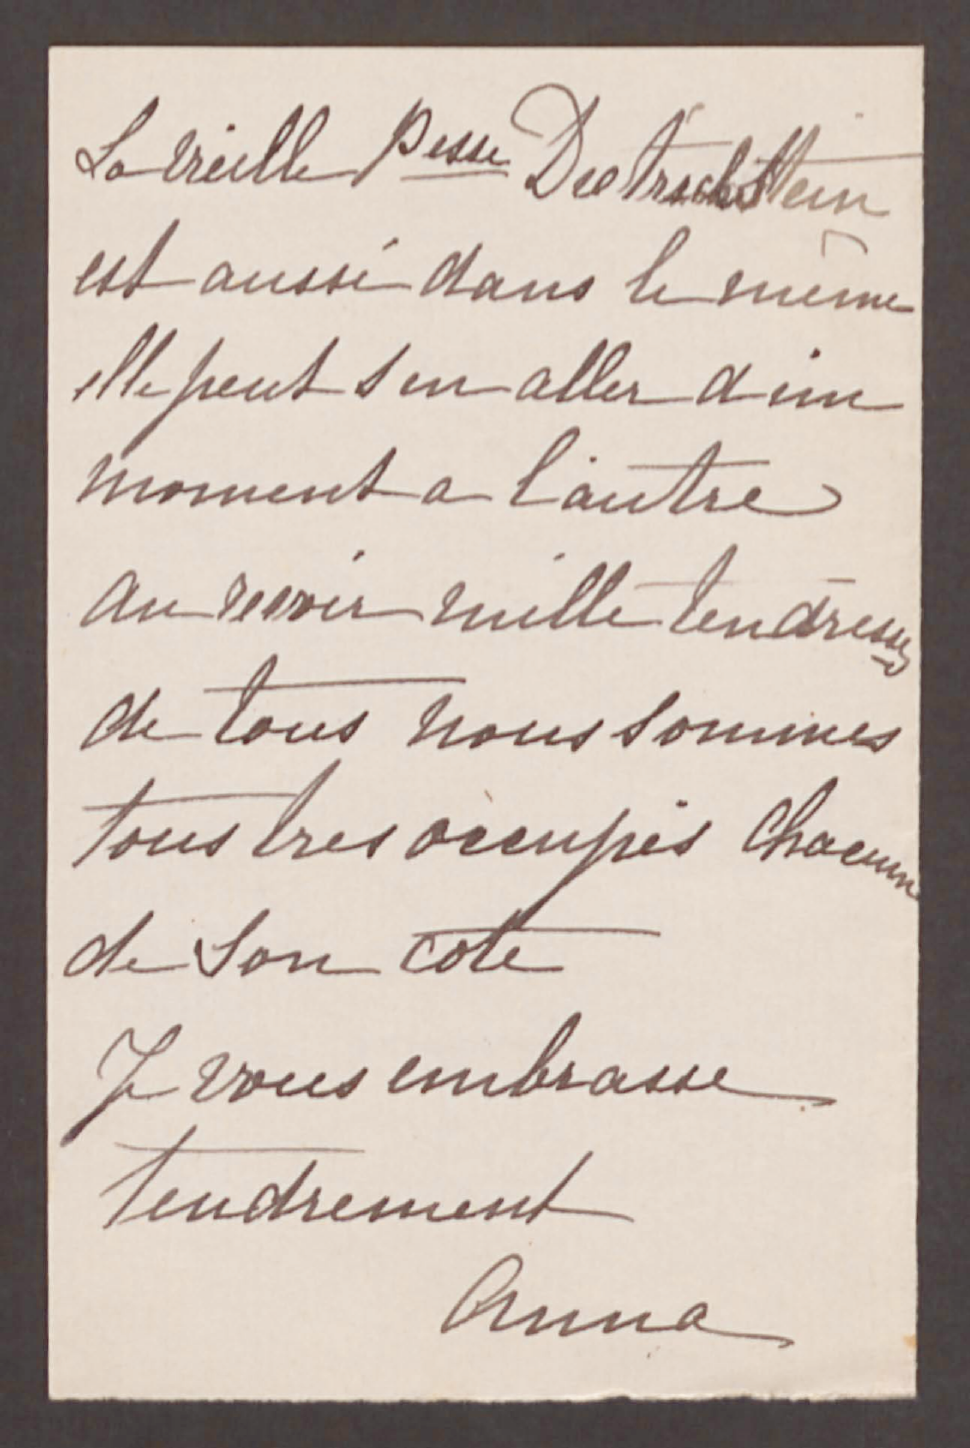 La vieille Pesse Dietrichstein
est aussi dans le même
elle peut s en aller d un
moment a l'autre
au revoir mille tendresses
de tous nous sommes
tous tres occupés chacun
de son coté
Je vous embrasse
tendrement
Anna